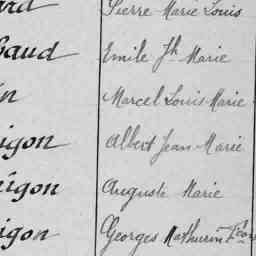 Pierre Marie Louis
Emile Jh Marie
Marcel Louis Marie
Albert Jean Marie
igon Auguste Marie
igon Georges Mathurin